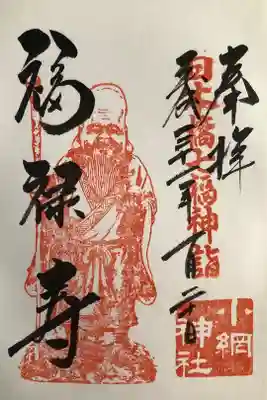 奉拝
日本橋七福神詣
小網
神社
福禄寿